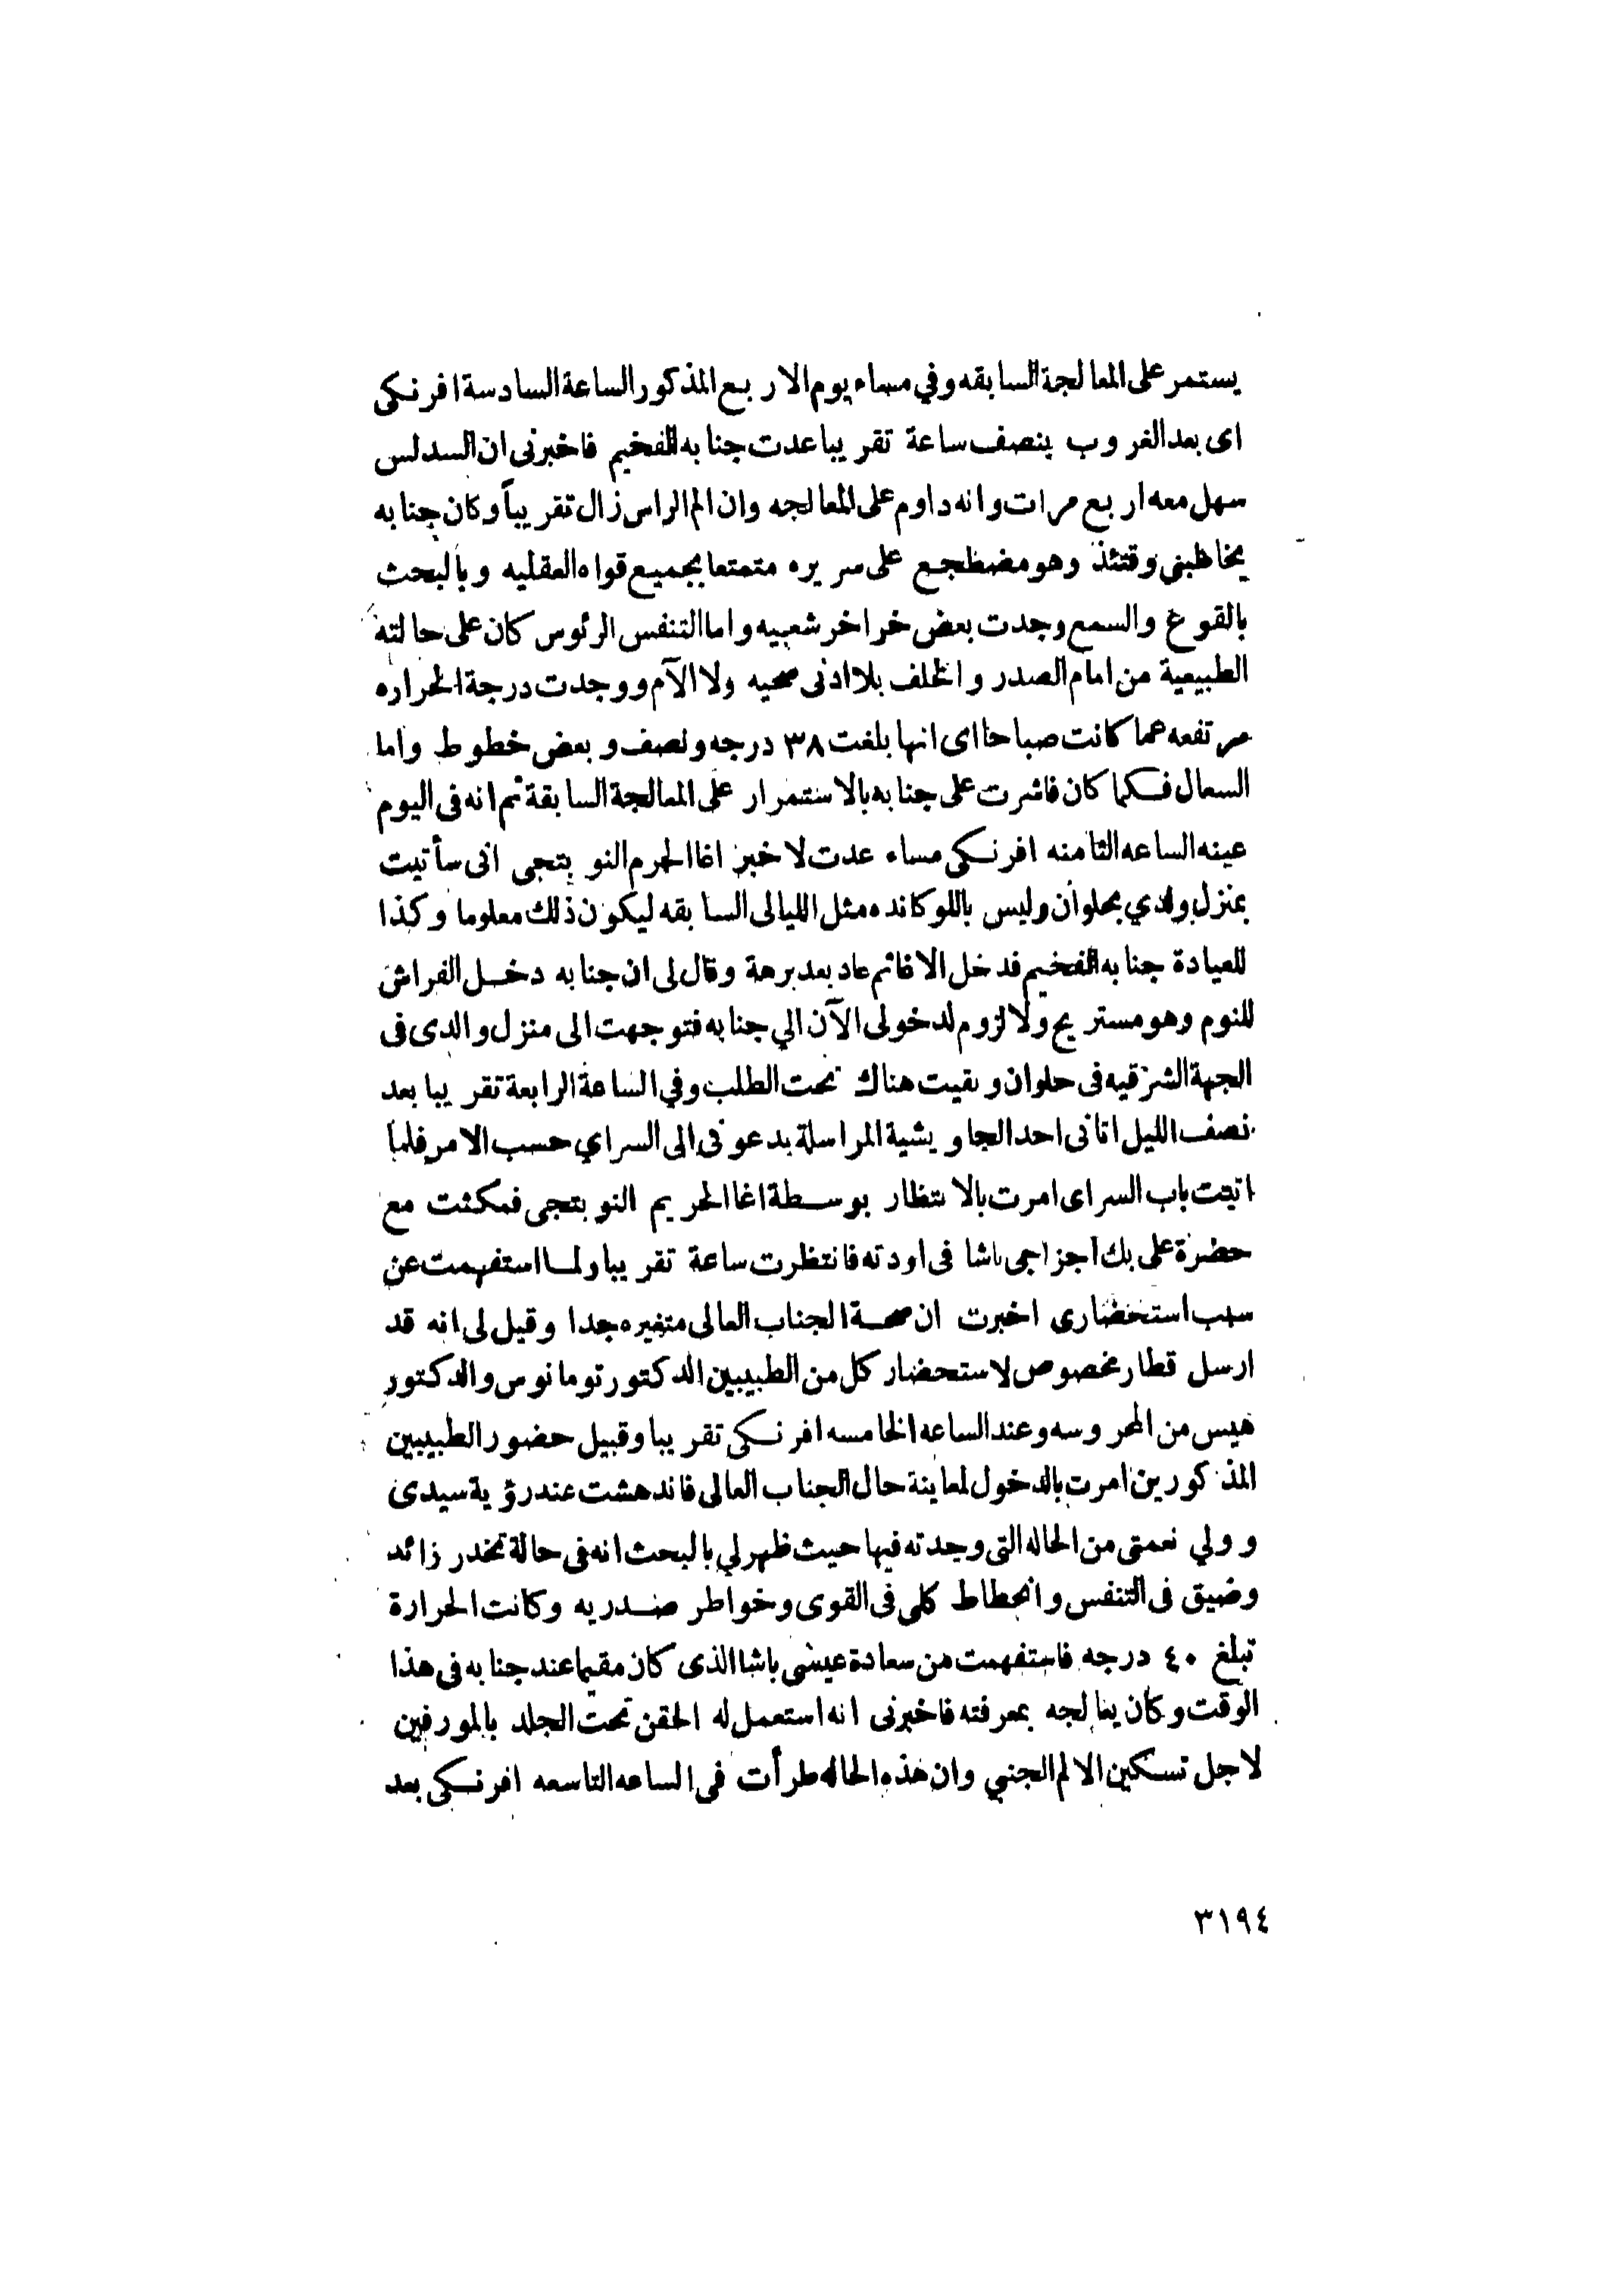 يستمر على المعالجة السابقه وفي مساء يوم الاربع المذكور الساعة السادسة افرنكى
اى بعد الغروب بنصف ساعة تقريبا عدت جنابه الفخيم فاخبرنى ان السدلس
سهل معه اربع مرات وانه داوم على المعالجه وان الم الراس زال تقريباً وكان جنابه
يخاطبنى وقتئذ وهو مضطجع على سريره متمتعا بجميع قواه العقليه وبالبحث
بالقرع والسمع وجدت بعض خراخر شعبيه واما التنفس الرئوس كان على حالته
الطبيعية من امام الصدر والخلف بلا ادنى صحيه ولا الآم ووجدت درجة الحراره
مرتفعه عما كانت صباحا اى انها بلغت ٣٨ درجه ونصف وبعض خطوط واما
السعال فكما كان فاشرت على جنابه بالاستمرار على المعالجة السابقة ثم انه فى اليوم
عينه الساعه الثامنه افرنكى مساء عدت لاخبر اغا الحرم النوبتجى انى سأتيت
بمنزل والدي بحلوان وليس باللوكانده مثل الليالى السابقه ليكون ذلك معلوما وكذا
للعيادة جنابه الفخيم فدخل الاغا ثم عاد بعد برهة وقال لى ان جنابه دخل الفراش
للنوم وهو مستريح ولا لزوم لدخولى الآن الي جنابه فتوجهت الى منزل والدى فى
الجهة الشرقيه فى حلوان وبقيت هناك تحت الطلب وفي الساعة الرابعة تقريبا بعد
نصف الليل اتانى احد الجاويشية المراسلة يدعونى الى السراي حسب الامر فلما
اتيت باب السراى امرت بالانتظار بوسطة اغا الحريم النوبتجى فمكثت مع
حضرة على بك اجزاجى باشا فى اودته فانتظرت ساعة تقريبا ولما استفهمت عن
سبب استحضارى اخبرت ان صحة الجناب العالى متغيره جدا وقيل لى انه قد
ارسل قطار مخصوص لاستحضار كل من الطبيبين الدكتور تومانوس والدكتور
هيس من المحروسه وعند الساعه الخامسه افرنكى تقريبا وقبيل حضور الطبيبين
المذكورين امرت بالدخول لمعاينة حال الجناب العالى فاندهشت عند رؤية سيدى
وولي نعمتى من الحاله التى وجدته فيها حيث ظهر لي بالبحث انه فى حالة تخدر زائد
وضيق فى التنفس وانحطاط كلى فى القوى وخواطر صدريه وكانت الحرارة
تبلغ ٤٠ درجه فاستفهمت من سعادة عيسى باشا الذى كان مقيما عند جنابه فى هذا
الوقت وكان يعالجه بمعرفته فاخبرنى انه استعمل له الحقن تحت الجلد بالمورفين
لاجل تسكين الالم الجنبي وان هذه الحاله طرأت فى الساعه التاسعه افرنكى بعد
٣١٩٤